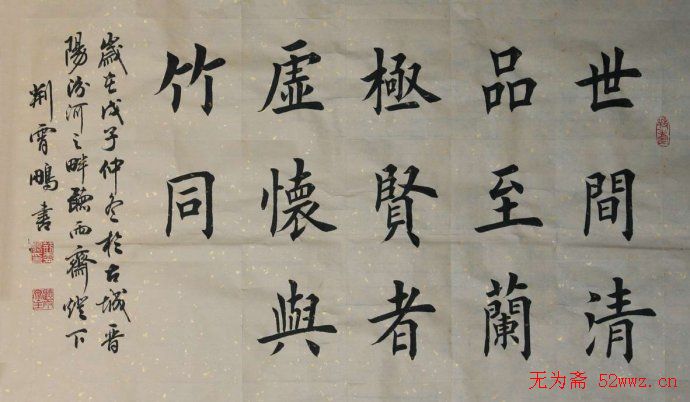 世間清
品至蘭
極賢者
虛懷與
竹同
歲在戊子仲冬於古城晋
陽汾河之畔聽雨齋燈下
荆霄鵬書
无为斋 52wwz.cn